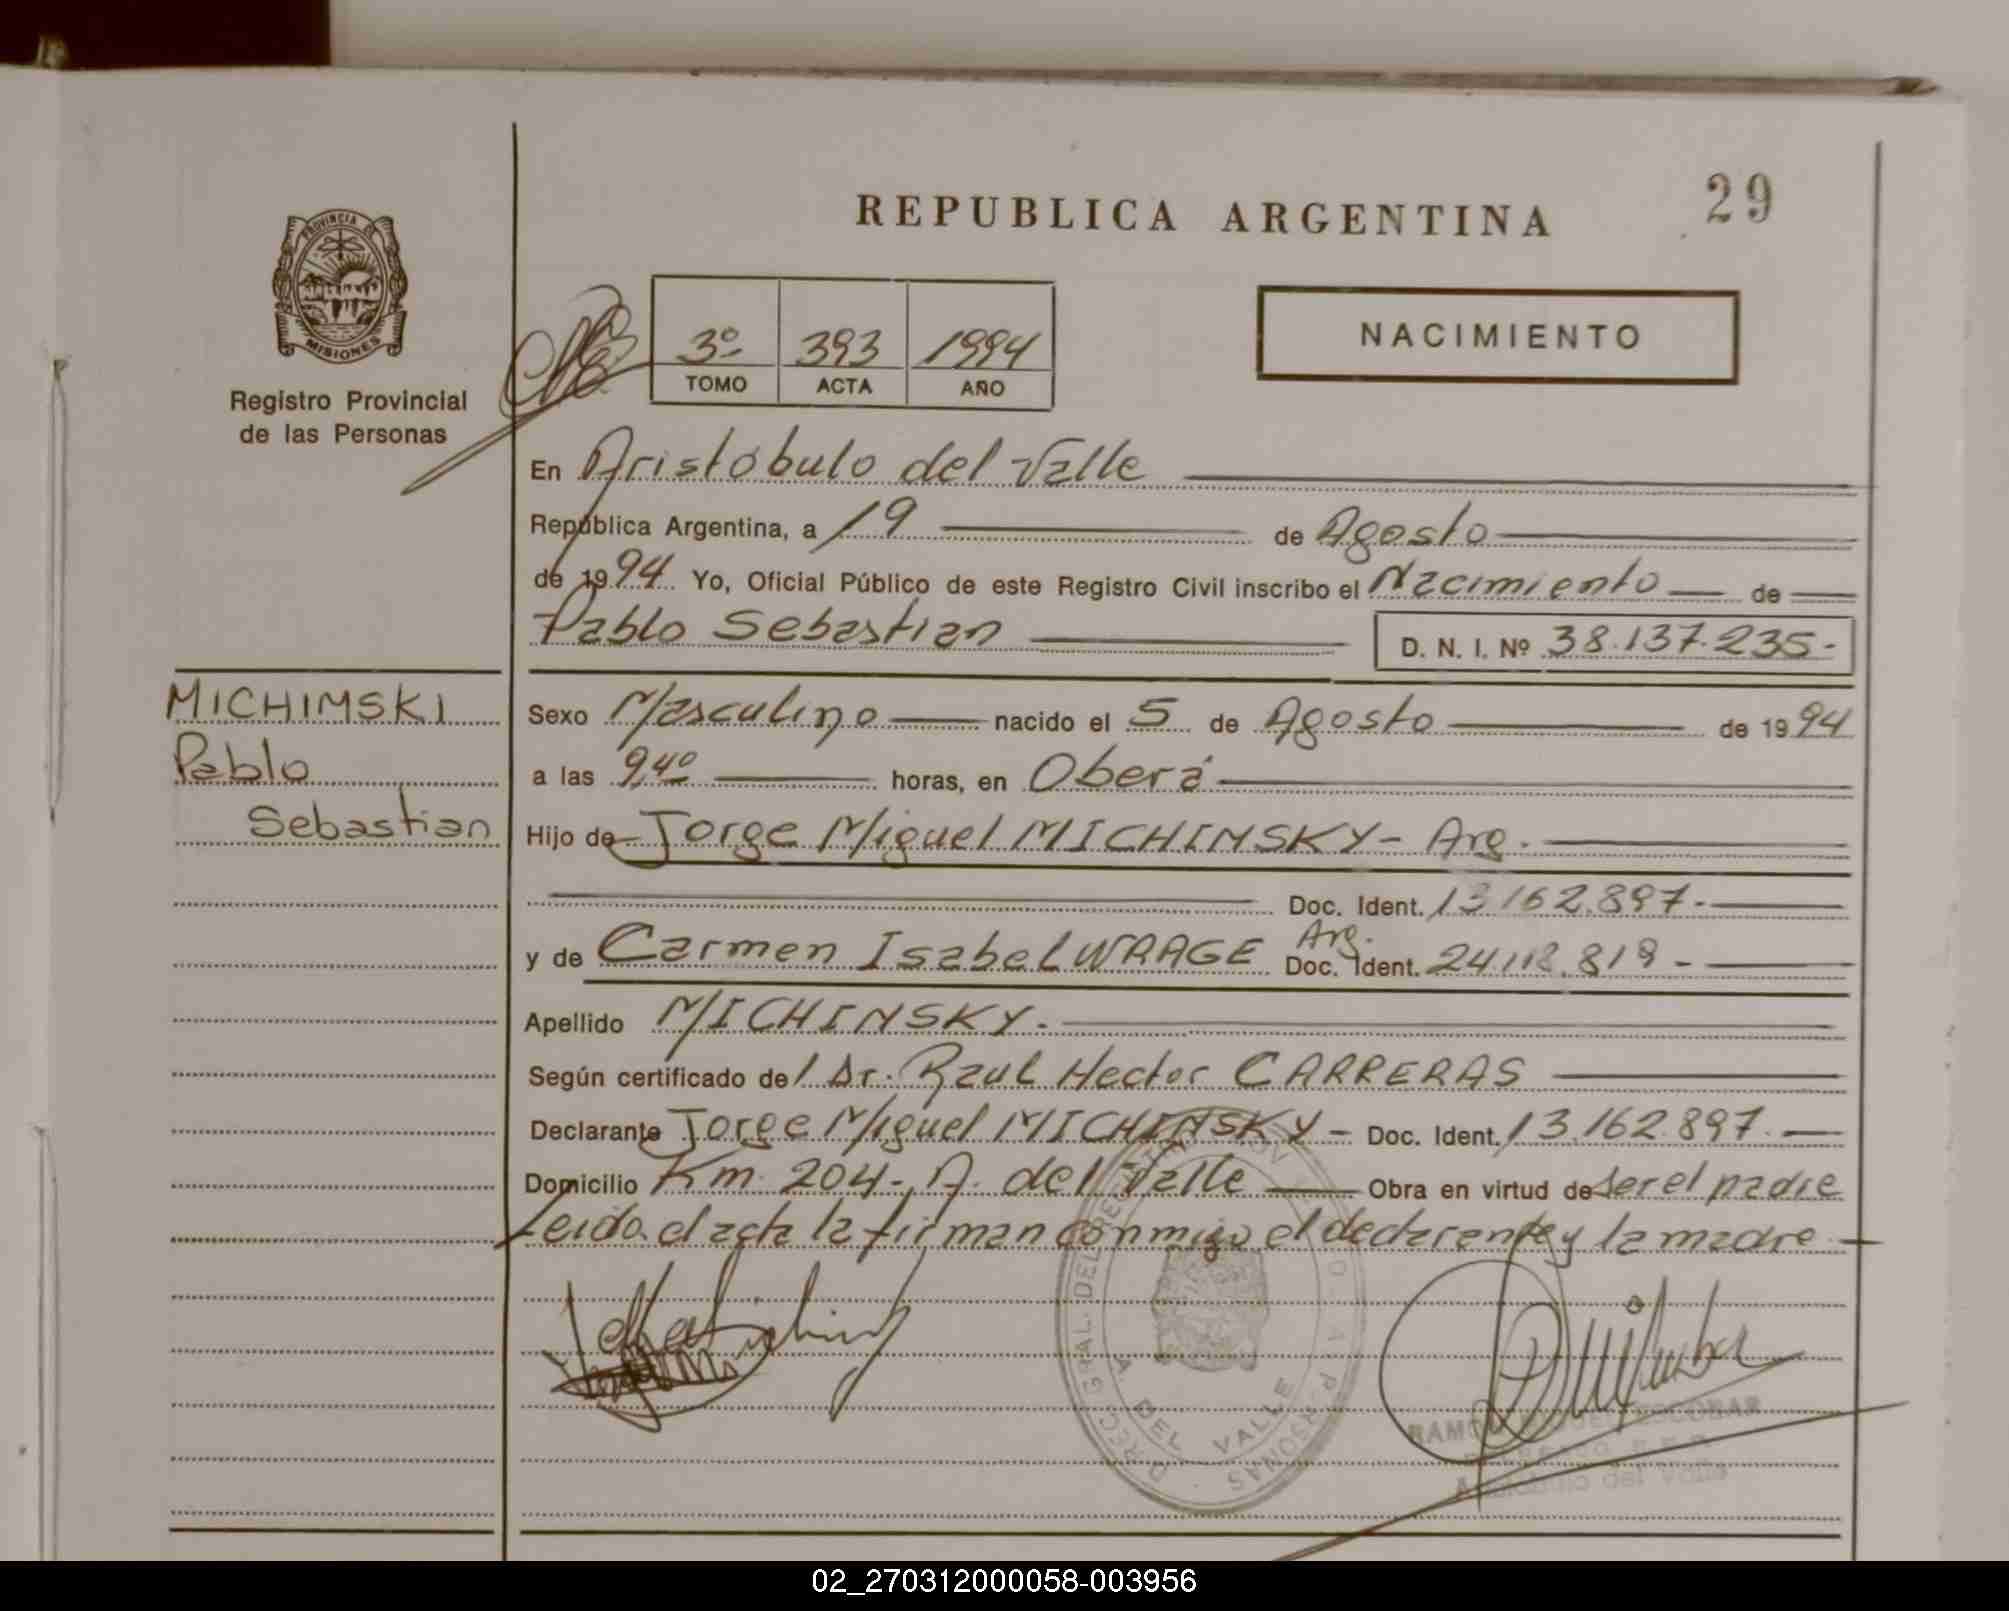 REPUBLICA ARGENTINA
29
PROVINCIA DE
MISIONES
Registro Provincial
de las Personas
3º 393 1994
TOMO ACTA AÑO
NACIMIENTO
En Aristóbulo del Valle
República Argentina, a 19 de Agosto
de 1994 Yo, Oficial Público de este Registro Civil inscribo el Nacimiento de
Pablo Sebastian D. N. I. Nº 38.137.235-
MICHIMSKI
Pablo
Sebastian
Sexo Masculino nacido el 5 de Agosto de 1994
a las 9,40 horas, en Oberá
Hijo de Jorge Miguel MICHINSKY - Arg.
Doc. Ident. 13.162.897.-
y de Carmen Isabel WRAGE Arg. Doc. Ident. 24.118.819-
Apellido MICHINSKY.
Según certificado del Dr. Raul Hector CARRERAS
Declarante Jorge Miguel MICHINSKY - Doc. Ident. 13.162.897.
Domicilio Km. 204-, A. del Valle Obra en virtud de ser el padre
Leida el acta la firman conmigo el declarante y la madre
A. DEL VALLE
ESCOBAR
del Valle
02_270312000058-003956